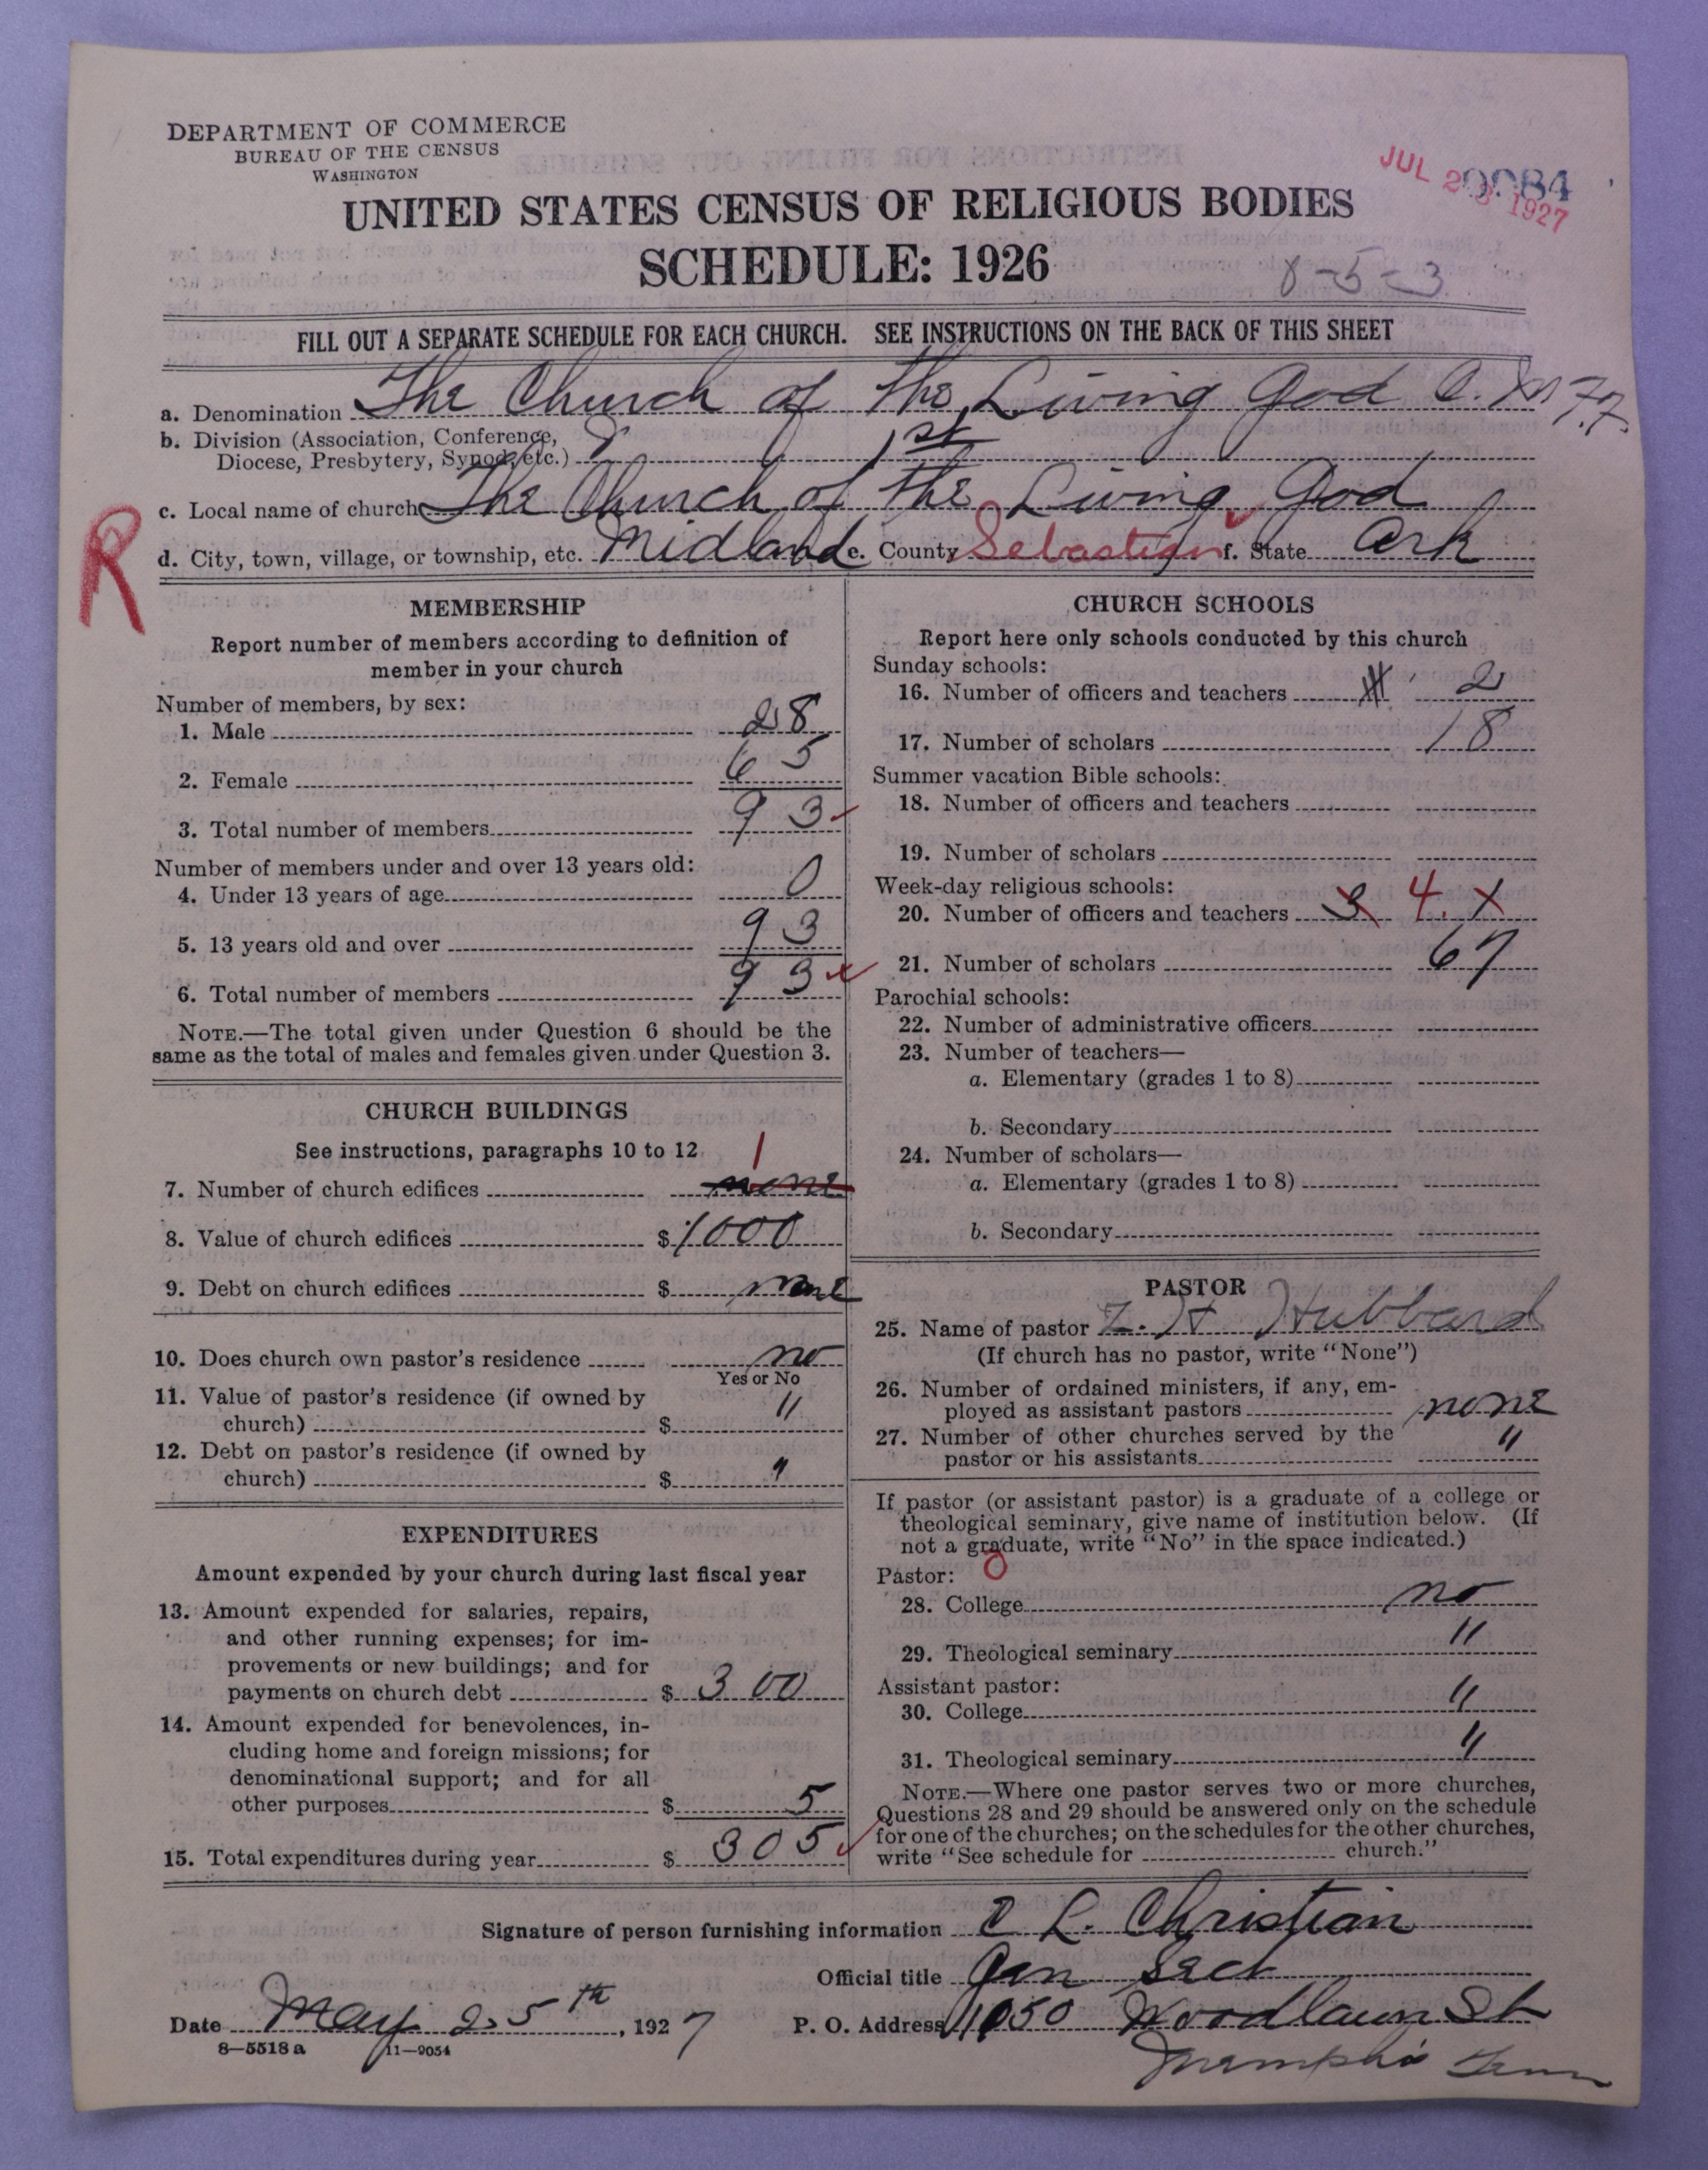 DEPARTMENT OF COMMERCE
BUREAU OF THE CENSUS
WASHINGTON
JUL 28 1927
UNITED STATES CENSUS OF RELIGIOUS BODIES
SCHEDULE: 1926
8-5-3
FILL OUT A SEPARATE SCHEDULE FOR EACH CHURCH. SEE INSTRUCTIONS ON THE BACK OF THIS SHEET
a. Denomination The Church of the Living God C.
b. Division (Association, Conference, 1st
Diocese, Presbytery, Synod, etc.)
c. Local name of church The Church of the Living God
R
d. City, town, village, or township, etc. Midland e. County Sebastian f. State Ark
MEMBERSHIP
Report number of members according to definition of
member in your church
Number of members, by sex:
1. Male 28
2. Female 65
3. Total number of members 93
Number of members under and over 13 years old:
4. Under 13 years of age 0
5. 13 years old and over 93
6. Total number of members 93
NOTE.—The total given under Question 6 should be the
same as the total of males and females given under Question 3.
CHURCH BUILDINGS
See instructions, paragraphs 10 to 12
1
7. Number of church edifices none
8. Value of church edifices $ 1000
9. Debt on church edifices $ none
10. Does church own pastor's residence no
Yes or No
11. Value of pastor's residence (if owned by
church) $ "
12. Debt on pastor's residence (if owned by
church) $ "
EXPENDITURES
Amount expended by your church during last fiscal year
13. Amount expended for salaries, repairs,
and other running expenses; for im-
provements or new buildings; and for
payments on church debt $ 300
14. Amount expended for benevolences, in-
cluding home and foreign missions; for
denominational support; and for all
other purposes $ 5
15. Total expenditures during year $ 305
CHURCH SCHOOLS
Report here only schools conducted by this church
Sunday schools:
16. Number of officers and teachers 2
17. Number of scholars 18
Summer vacation Bible schools:
18. Number of officers and teachers
19. Number of scholars
Week-day religious schools:
20. Number of officers and teachers 3 4. X
21. Number of scholars 67
Parochial schools:
22. Number of administrative officers
23. Number of teachers—
a. Elementary (grades 1 to 8)
b. Secondary
24. Number of scholars—
a. Elementary (grades 1 to 8)
b. Secondary
PASTOR
25. Name of pastor Z. H Hubbard
(If church has no pastor, write "None")
26. Number of ordained ministers, if any, em-
ployed as assistant pastors none
27. Number of other churches served by the
pastor or his assistants "
If pastor (or assistant pastor) is a graduate of a college or
theological seminary, give name of institution below. (If
not a graduate, write "No" in the space indicated.)
Pastor:
28. College no
29. Theological seminary "
Assistant pastor:
30. College "
31. Theological seminary "
NOTE.—Where one pastor serves two or more churches,
Questions 28 and 29 should be answered only on the schedule
for one of the churches; on the schedules for the other churches,
write "See schedule for church."
Signature of person furnishing information C L. Christian
Official title Gen Sect
Date May 25th, 1927 P. O. Address 1050 Woodlawn St
8—5518 a 11—9054
Memphis Tenn